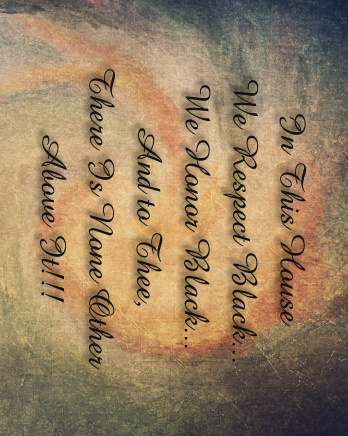 In This House
We Respect Black...
We Honor Black...
And to Thee,
There Is None Other
Above It!!!